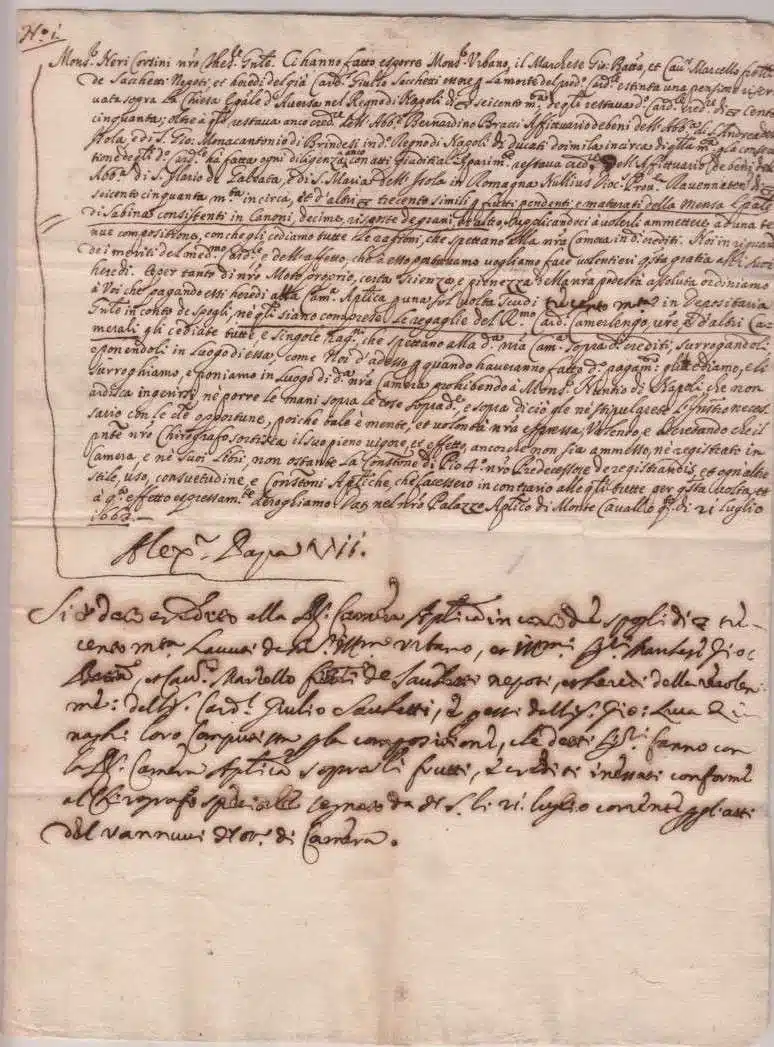 N.º i.
Mons.r Neri Corsini nro Thes.re Gnle. Ci hanno fatto esporre Mons.r Urbano, il Marchese Gio: Batta, et Cau.r Marcello fratelli
de Sacchetti Nepoti, et heredi del già Card. Giulio Sacchetti essere p la morte del Card.le estinta una pensione riser
vata sopra la Chiesa Epale d'Aversa nel Regno di Napoli di seicento m.ta de quali restava Card.le cred.re di Cento
cinquanta; oltre à q.li restava anco cred.re dell'Abb.e Bernardino Bracci Affittuario de beni dell'Abb.a di S. Andrea dell'
Isola, e di S. Gio: Monacantonio di Brindesi in d.o Regno di Napoli di Ducati doi mila incirca di q.lla m.ta p la consecu
tione de q.li d.o Card.le ha fatta ogni diligenza anco con atti Giuditiali, e parim.te restava cred.re dell'Affittuario de beni dell'
Abb.a di S. Ilario de Galeata, e di S. Maria dell'Isola in Romagna Nullius Dioc.s Prou.a Ravennaten di
seicento cinquanta m.ta in circa, et d'altri trecento simili p frutti pendenti, e maturati della Mensa Epale
di Sabina consistenti in Canoni, decime, risposte de grani, et altro, supplicandoci à volerli ammettere ad una te
nue compositione, con che gli cediamo tutte le ragioni, che spettano alla nra Camera in d.i crediti. Noi in riguardo
de i meriti del med.mo Card.le e dell'affetto, che à esso portavamo vogliamo fare volentieri q.sta gratia alli suoi
heredi. E per tanto di nro Moto proprio, certa scienza, e pienezza della nra podestà assoluta ordiniamo
à Voi che pagando essi heredi alla Cam.a Aplica p una sol volta scudi trecento m.ta in Depositaria
Gnle in conto de spogli, ne q.li siano comprese le regaglie del R.mo Card. Camerlengo, vre, e d'altri Ca
merali gli cediate tutte, e singole rag.ni che spettano alla d.a nra Cam.a sopra d.i crediti, surrogandoli
e ponendoli in luogo di essa, come Noi d'adesso p quando haveranno fatto d.o pagam.to gli cediamo, e li
surroghiamo, e poniamo in luogo di d.a nra Camera prohibendo à Mons.r Nuntio di Napoli, che non
ardisca ingerirsi, nè porre le mani sopra le cose soprad.e e sopra di ciò gle nè stipularete l'Instro neces
sario con le cle opportune, poiche tale è mente, et volontà nra espressa, Volendo, e decretando che il
pnte nro Chirografo sortisca il suo pieno vigore, et effetto, ancorche non sia ammesso, nè registrato in
Camera, e nè suoi libri, non ostante la Constone di Pio 4.º nro Predecessore de registrandis, et ogn'altre
stile, uso, consuetudine, e Constoni Apliche, che facessero in contrario alle q.li tutte per q.sta volta, et
à q.o effetto espressam.te deroghiamo. Dat. nel nro Palazzo Aplico di Monte Cavallo q.o di 21 luglio
1663.
Alex.r Papa VII.
Si dà Credito alla R. Camera Aplica in conto de spogli di tre
cento m.ta havuti da Mons. Ill.mo Urbano, et Ill.mi SS.ri Marchese Gio:
Batta, et Cau.r Marcello fratelli de Sacchetti nepoti, et heredi della
me: dell S. Card.l Giulio Sacchetti, dell S. Gio: Luca
loro Computista p la compositione, che detti SS.ri fanno con
la R. Camera Aplica sopra li frutti, e crediti conforme
al Chirografo speciale segnato da S. li 21. luglio corrente p gli atti
del Vannucci Not.o di Camera.